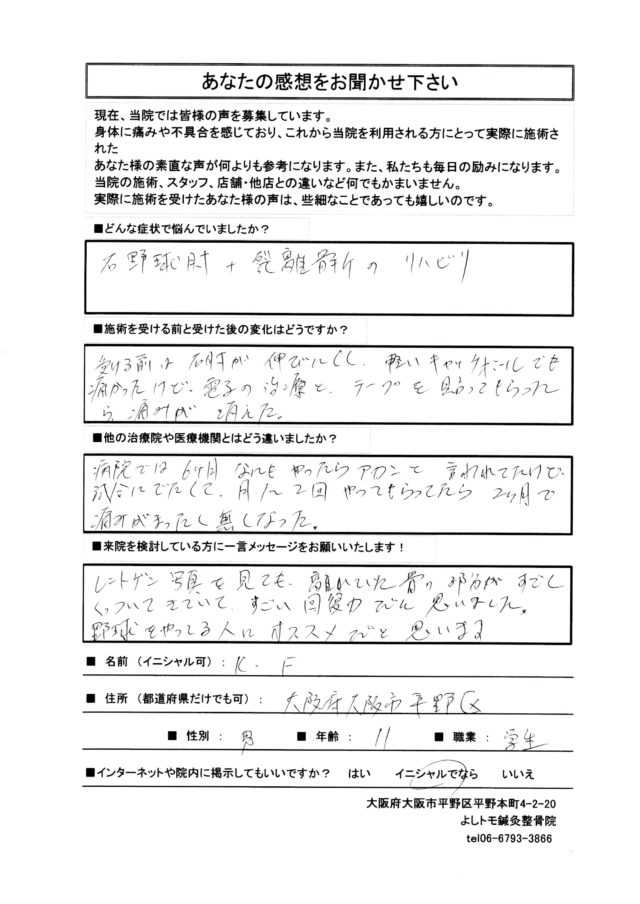 あなたの感想をお聞かせ下さい
現在、当院では皆様の声を募集しています。
身体に痛みや不具合を感じており、これから当院を利用される方にとって実際に施術さ
れた
あなた様の素直な声が何よりも参考になります。また、私たちも毎日の励みになります。
当院の施術、スタッフ、店舗・他店との違いなど何でもかまいません。
実際に施術を受けたあなた様の声は、些細なことであっても嬉しいのです。
■どんな症状で悩んでいましたか？
右野球肘+裂離骨折のリハビリ
■施術を受ける前と受けた後の変化はどうですか？
受ける前は右肘が伸びにくく、軽いキャッチボールでも
痛かったけど、電子の治療と、テープを貼ってもらった
ら、痛みが消えた。
■他の治療院や医療機関とはどう違いましたか？
病院では6ヶ月なにもやったらアカンと言われてたけど、
試合にでたくて、月1〜2回やってもらってたら2ヶ月で
痛みがまったく無くなった。
■来院を検討している方に一言メッセージをお願いいたします！
レントゲン写真を見ても、離れていた骨の部分がすこし
くっついてきていて、すごい回復力だと思いました。
野球をやってる人にオススメだと思います
■ 名前（イニシャル可）： K.F
■ 住所（都道府県だけでも可）： 大阪府大阪市平野区
■ 性別： 男 ■ 年齢： 11 ■ 職業： 学生
■インターネットや院内に掲示してもいいですか？ はい イニシャルでなら いいえ
大阪府大阪市平野区平野本町4-2-20
よしトモ鍼灸整骨院
tel06-6793-3866